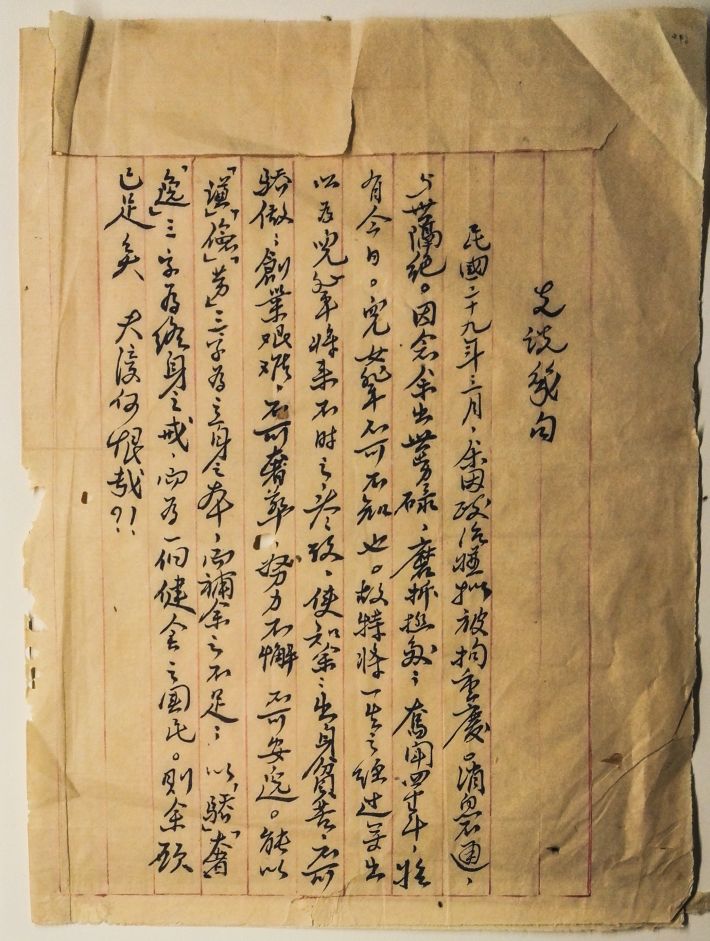 先說幾句
民國二十九年三月，余因政治嫌拟被拘重慶。消息不通，
与世隔絕。因念余出世勞碌，磨折極多，奮鬥四十年，始
有今日。兒女輩不可不知也。故特將一生之經过寫出
以為兒輩將來不时之參攷，使知余之出身貧苦，不可
驕傲，創業艰难，不可奢華，努力不懈，不可安逸。能以
「謙」「儉」「勞」三字為立身之本，而補余之不足；以「驕」「奢」
「逸」三字為終身之戒，而為一個健全之國民。則余願
已足矣 夫復何恨哉？！